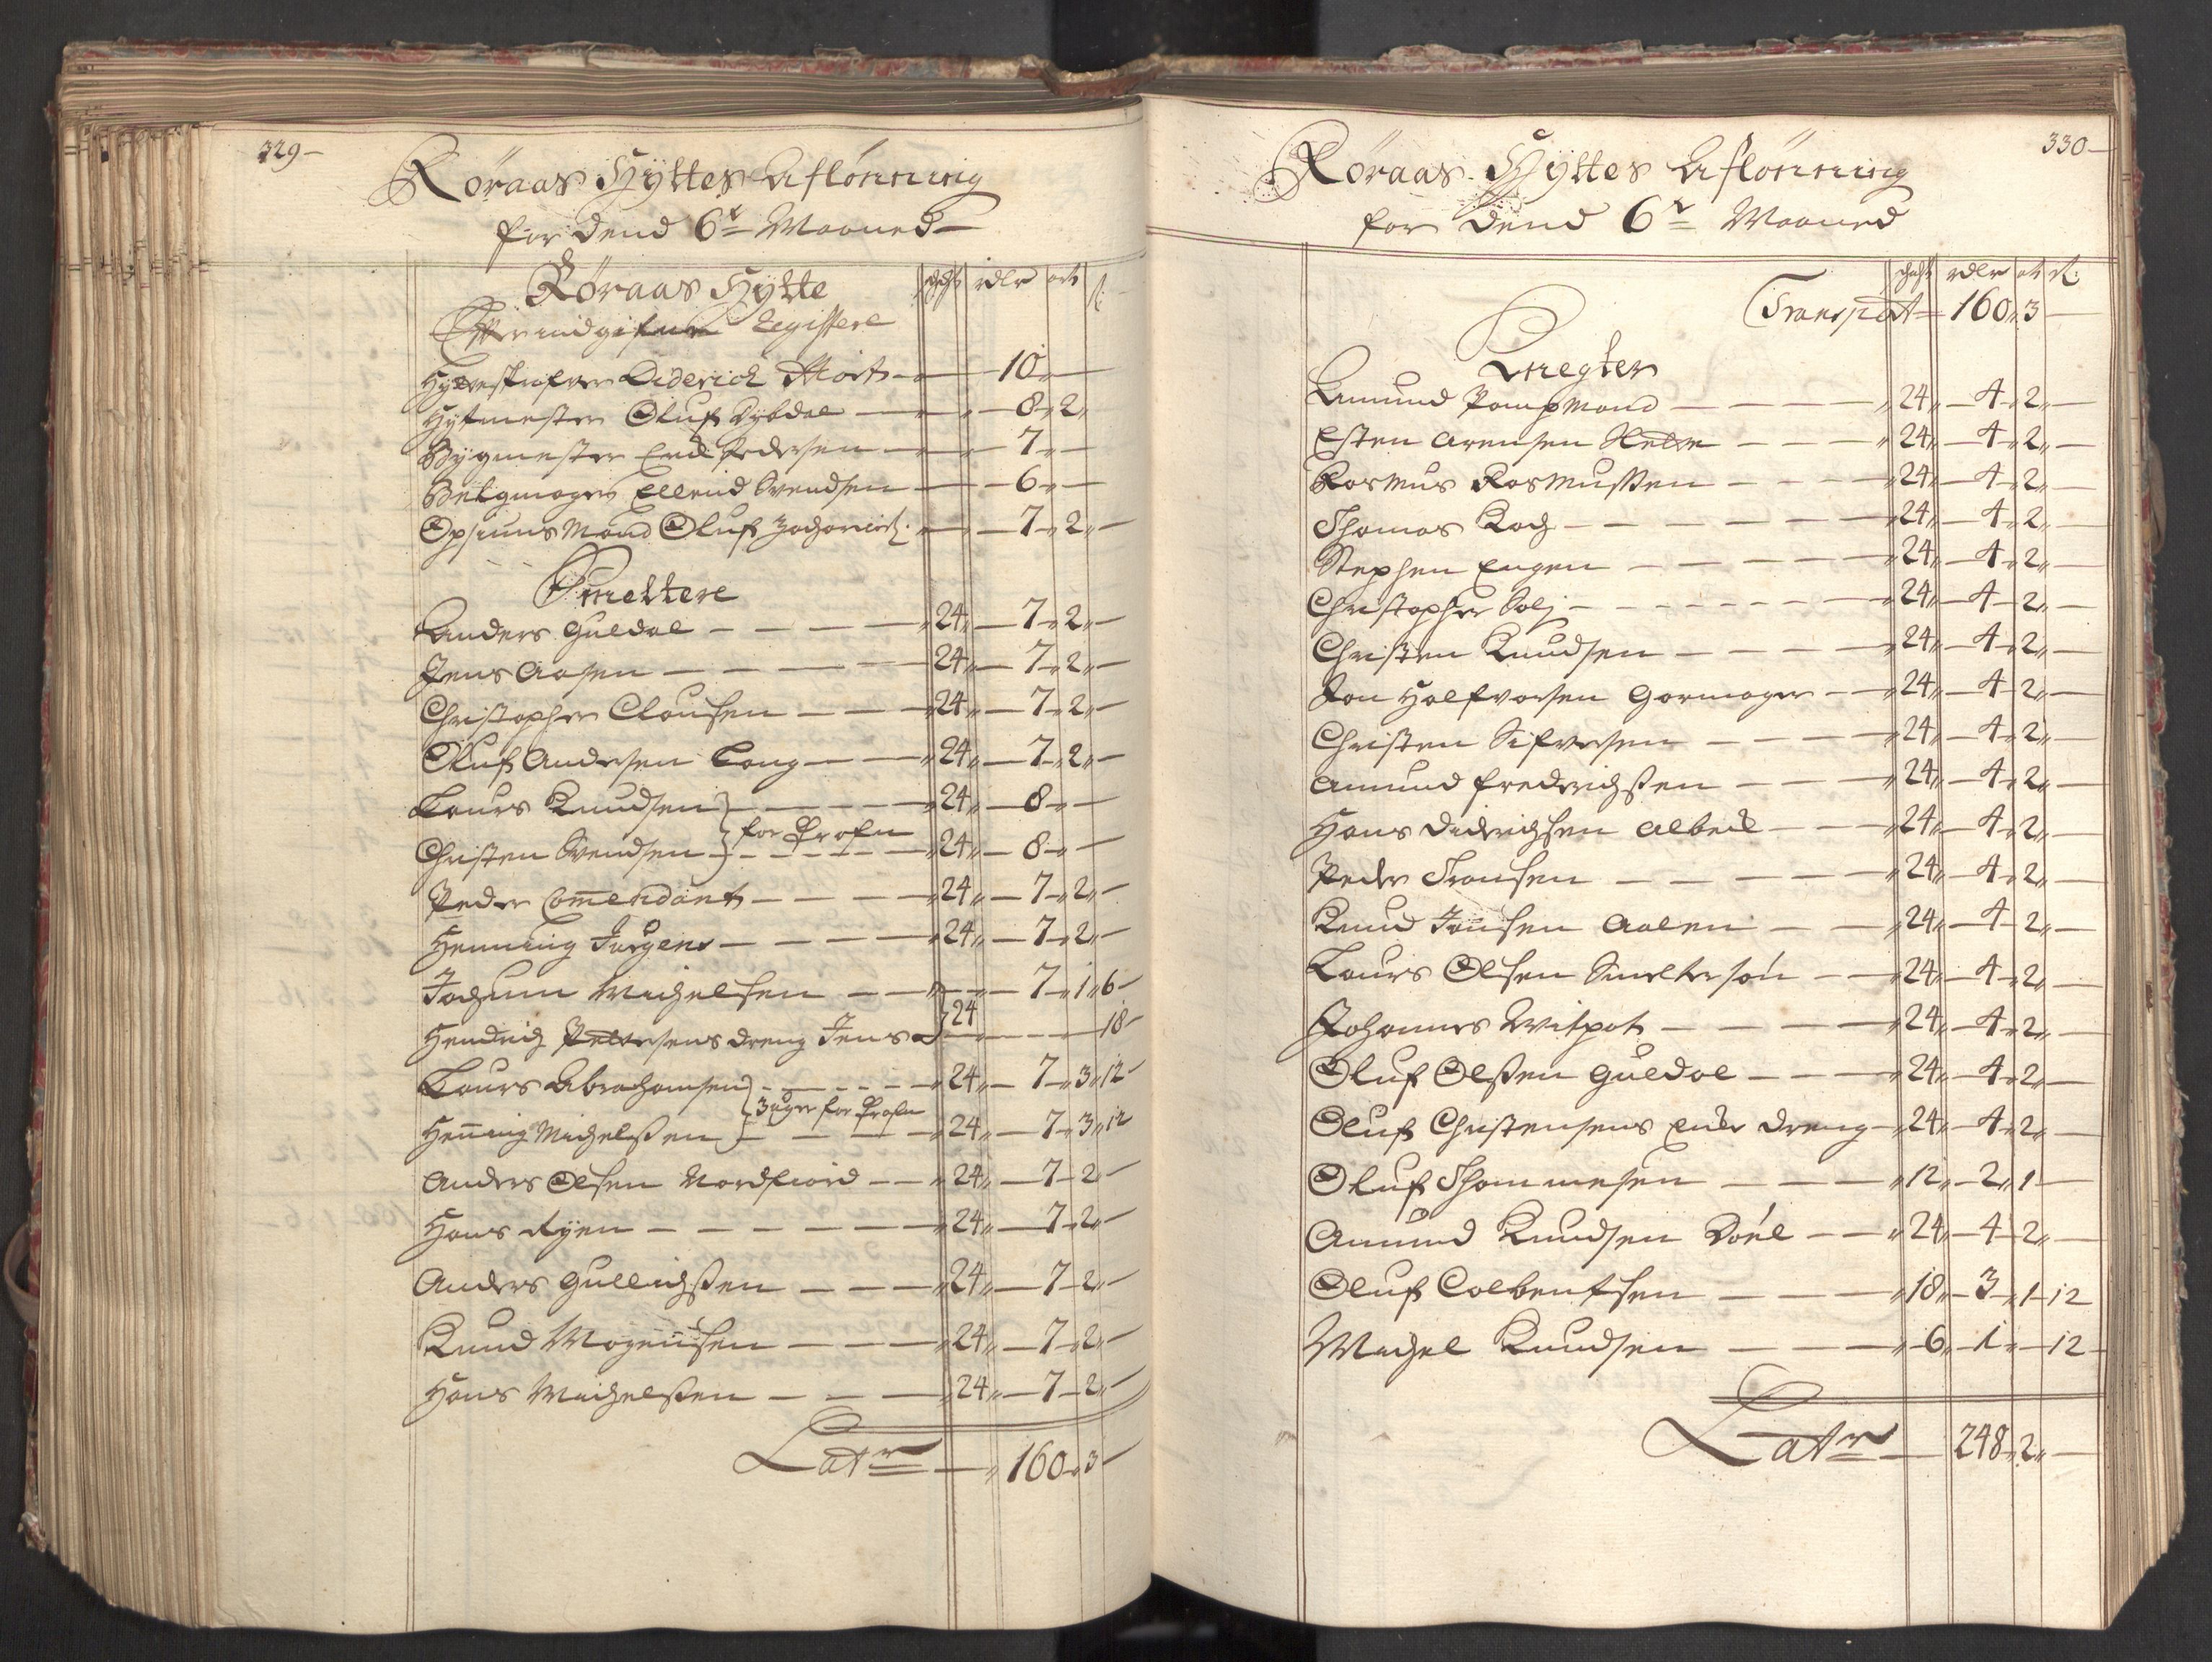 329
Røraas Hyttes Aflønning
for dend 6te Maaned
Røraas Hytte
schft rdlr ort s:
Efter indgifvne Legissere
Hytteskrifver Diderich Mort 10
Hytmester Oluf Dybdal 8 2
Bygmester End: Pedersen 7
Belgmager Ellend Svendsen 6
Opsiuns Mand Oluf Zachariæs: 7 2
Smeltere
Anders Guldal 24 7 2
Jens Aasen 24 7 2
Christopher Clausen 24 7 2
Oluf Andersen Lang 24 7 2
Laurs Knudsen 24 8
for Profen
Christen Svendsen 24 8
Peder Comendant 24 7 2
Henning Jurgens 24 7 2
Jochum Michelsen 7 1 6
Hendrich Petersens dreng Jens 24 18
Laurs Abrahamsen 24 7 3 12
3 uger for Profen
Hening Michelssen 24 7 3 12
Anders Olsen Nordfiord 24 7 2
Hans Ryen 24 7 2
Anders Gullichssen 24 7 2
Knud Mogensen 24 7 2
Hans Michelssen 24 7 2
Latr 160 3
330
Røraas Hyttes Aflønning
for dend 6te Maaned
schft rdlr ort s:
Transport 160 3
Knegter
Amund Pampmand 24 4 2
Esten Arensen 24 4 2
Rasmus Rasmussen 24 4 2
Thomas Koch 24 4 2
Stephen Engen 24 4 2
Christopher Solj 24 4 2
Christen Knudsen 24 4 2
Jon Halfvorsen Gormager 24 4 2
Christen Sifversen 24 4 2
Amund Fredrichsen 24 4 2
Hans Diderichsen Albeck 24 4 2
Peder Transen 24 4 2
Knud Jonsen Aalen 24 4 2
Laurs Olsen Smeltersøn 24 4 2
Johannes Witpot 24 4 2
Oluf Olssen Guldal 24 4 2
Oluf Christensens dreng 24 4 2
Oluf Thommesen 12 2 1
Amund Knudsen Doél 24 4 2
Oluf Colbentsen 18 3 1 12
Michel Knudsen 6 1 12
Latr 248 2